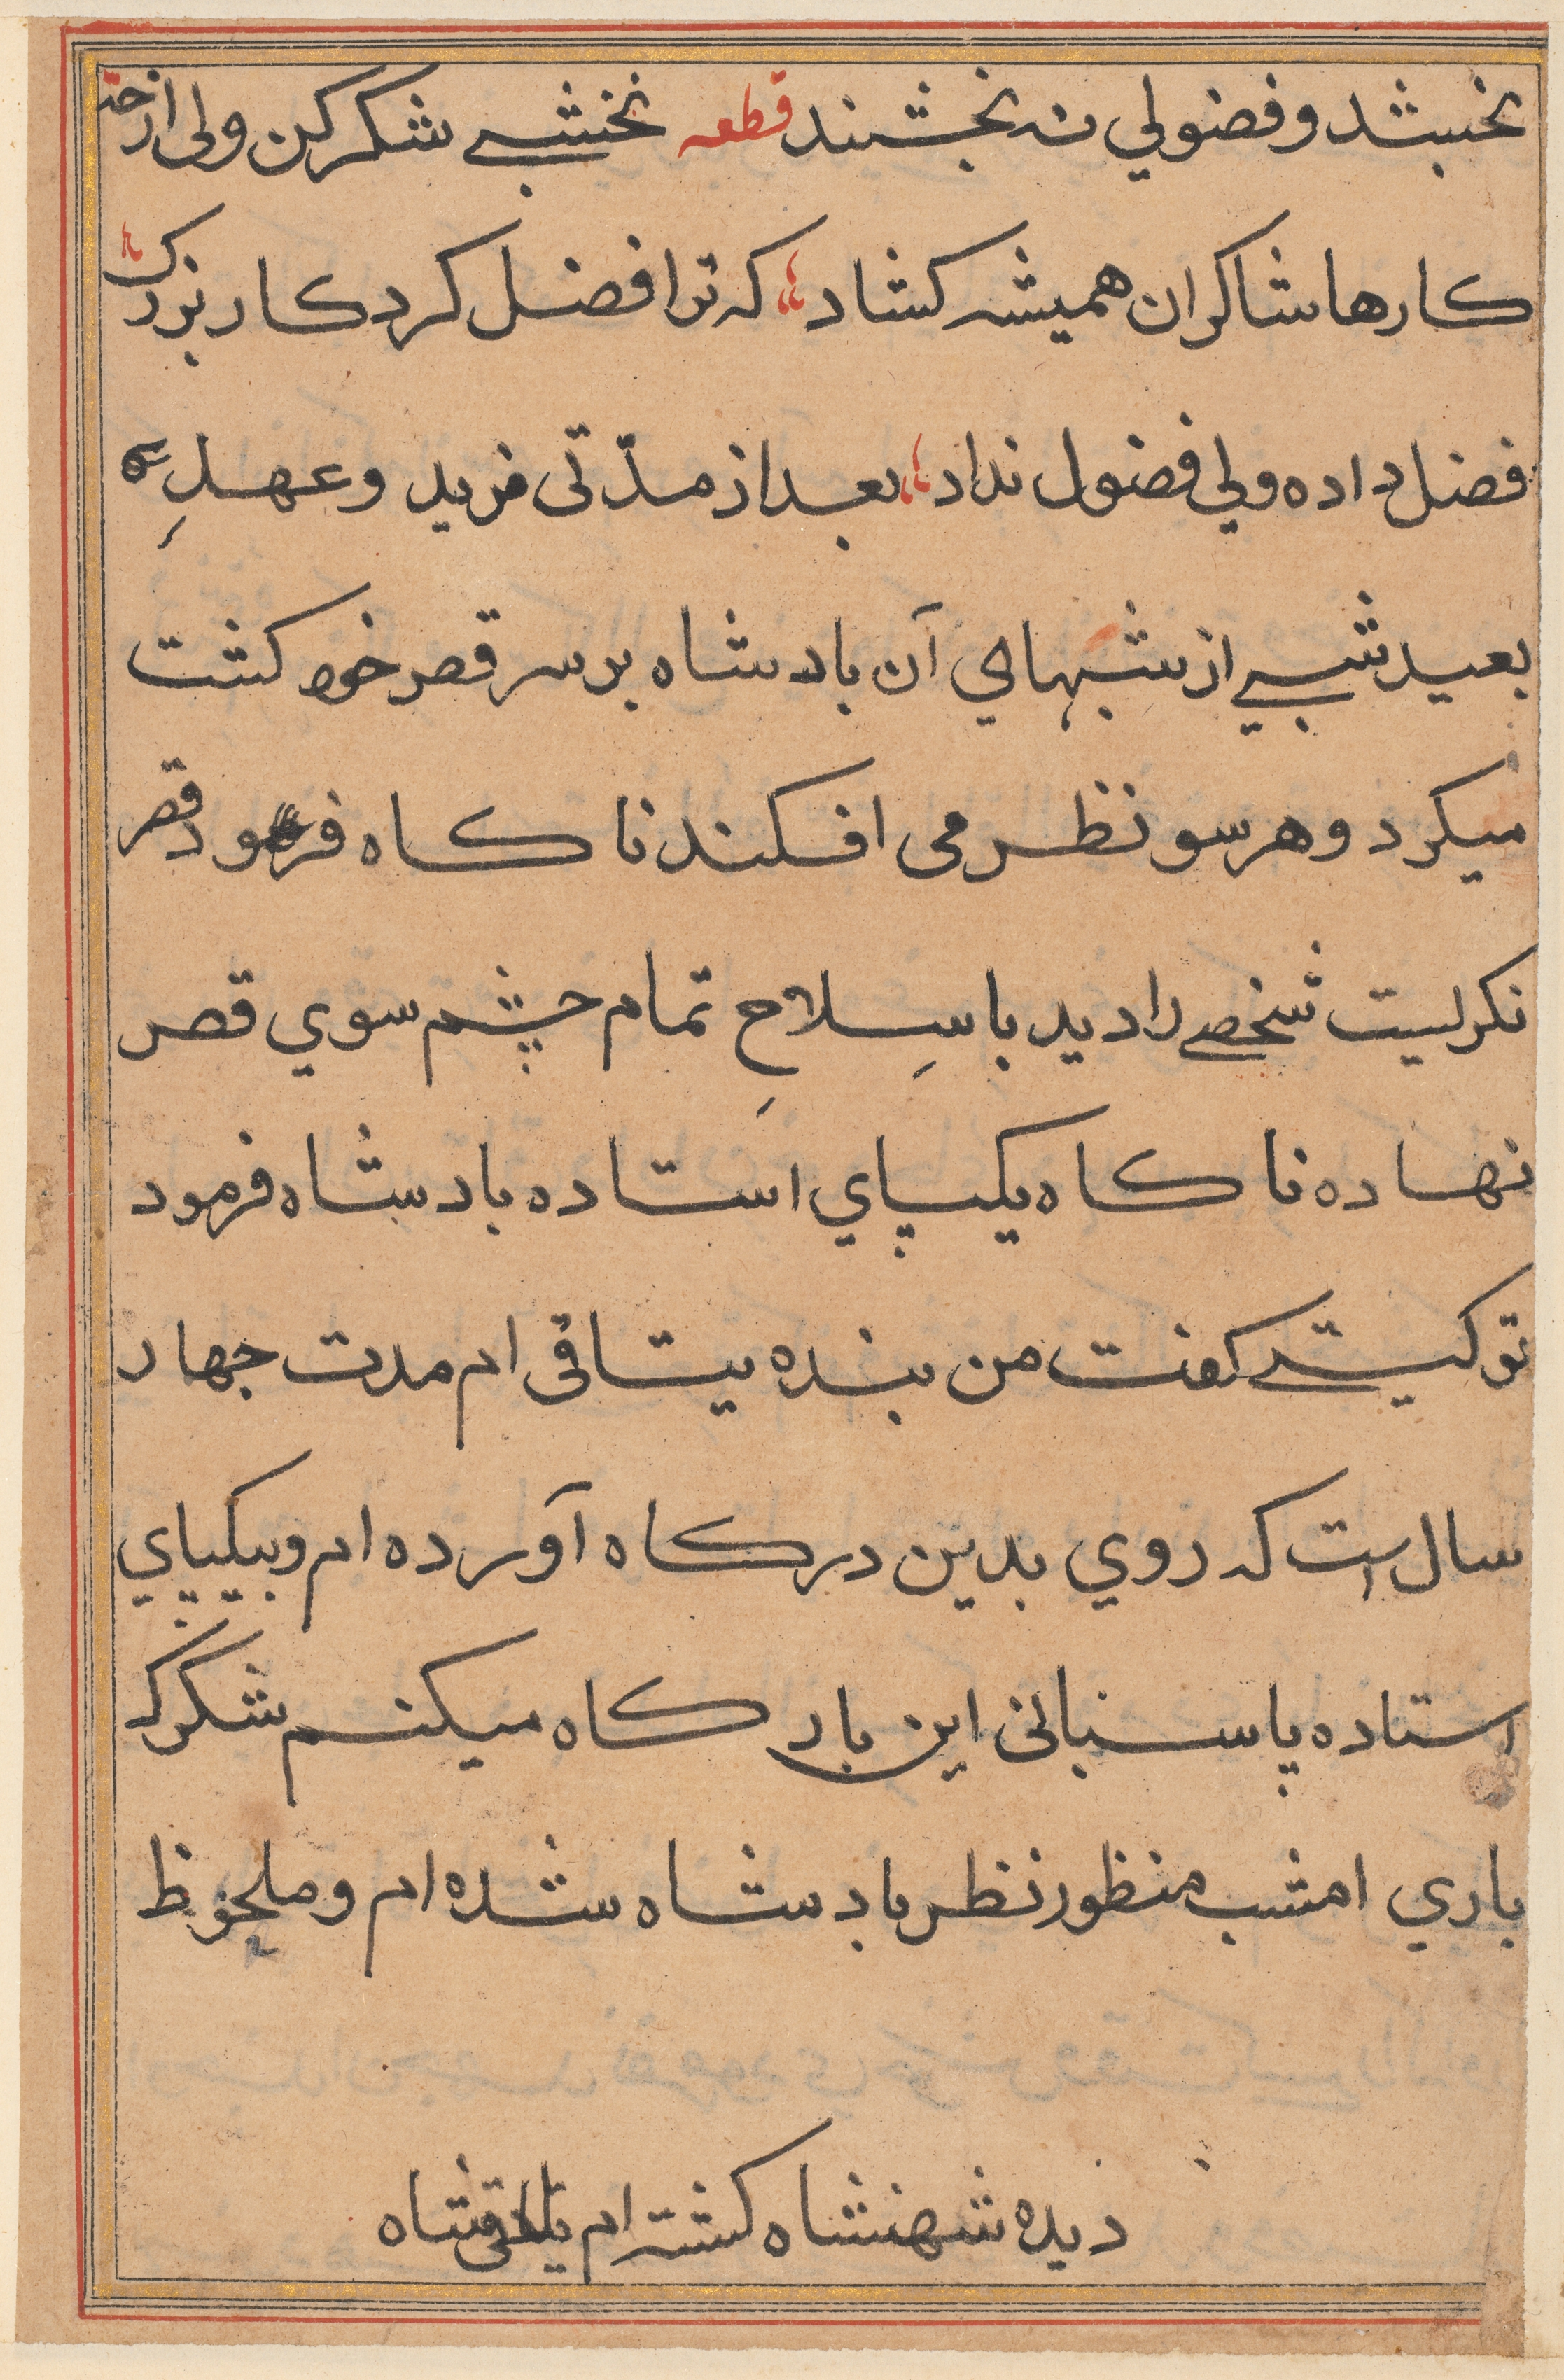 بخشد و فضولي نه بخشند قطعه نخشبي شكر كن ولى از حق
كارها شاكران هميشه كشاد كه ترا فضل كرد كار بزرك
فضل داده ولي فضول نداد بعد از مدّتى مزيد و عهدِ
بعيد شبي از شبهاي آن بادشاه بر سر قصر خود كشت
ميكرد و هر سو نظر مى افكند ناكاه فرود قصر
نكريست شخصي را ديد با سِلاحِ تمام چشم سوي قصر
نهاده ناكاه يكپاي استاده بادشاه فرمود
تو كيستي كفت من بنده يتاقى ام مدت چهار
سال است كه روي بدين دركاه آورده ام و بيكپاي
استاده پاسبانى اين باركاه ميكنم شكر كه
باري امشب منظور نظر بادشاه شده ام و ملحوظ
ديده شهنشاه كشته ام شاه